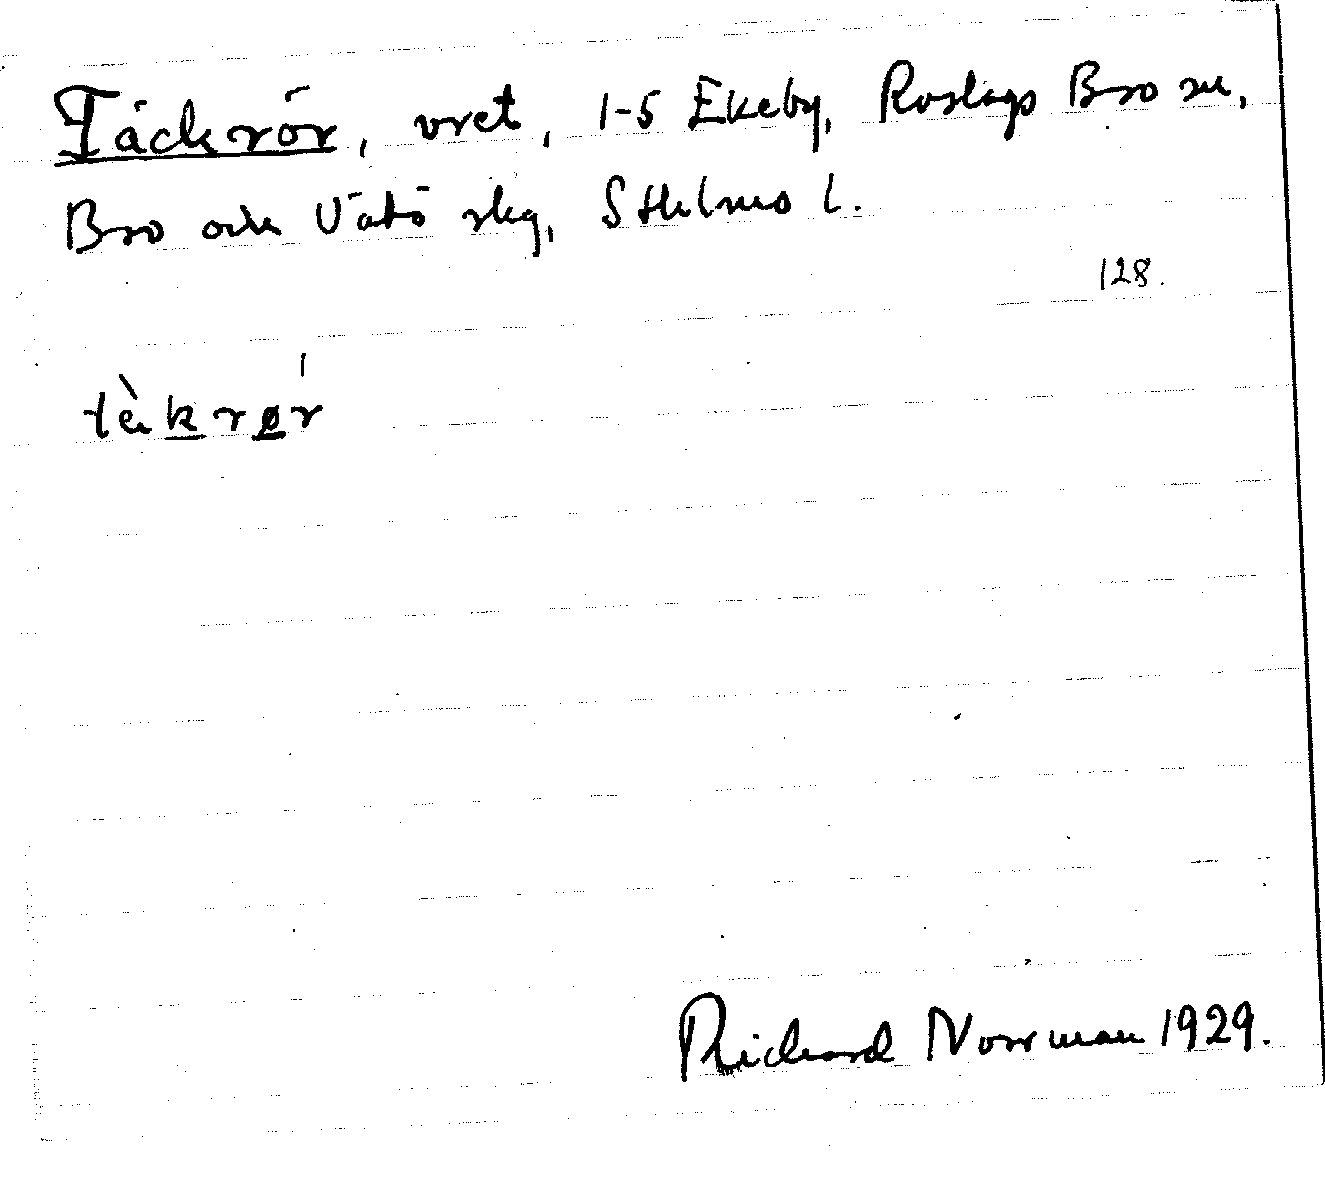 Täckrör, vret, 1-5 Ekeby, Roslags Bro sn,
Bro och Vätö skg, Sthlms l.
128.
tèkrør
Richard Norrman 1929.